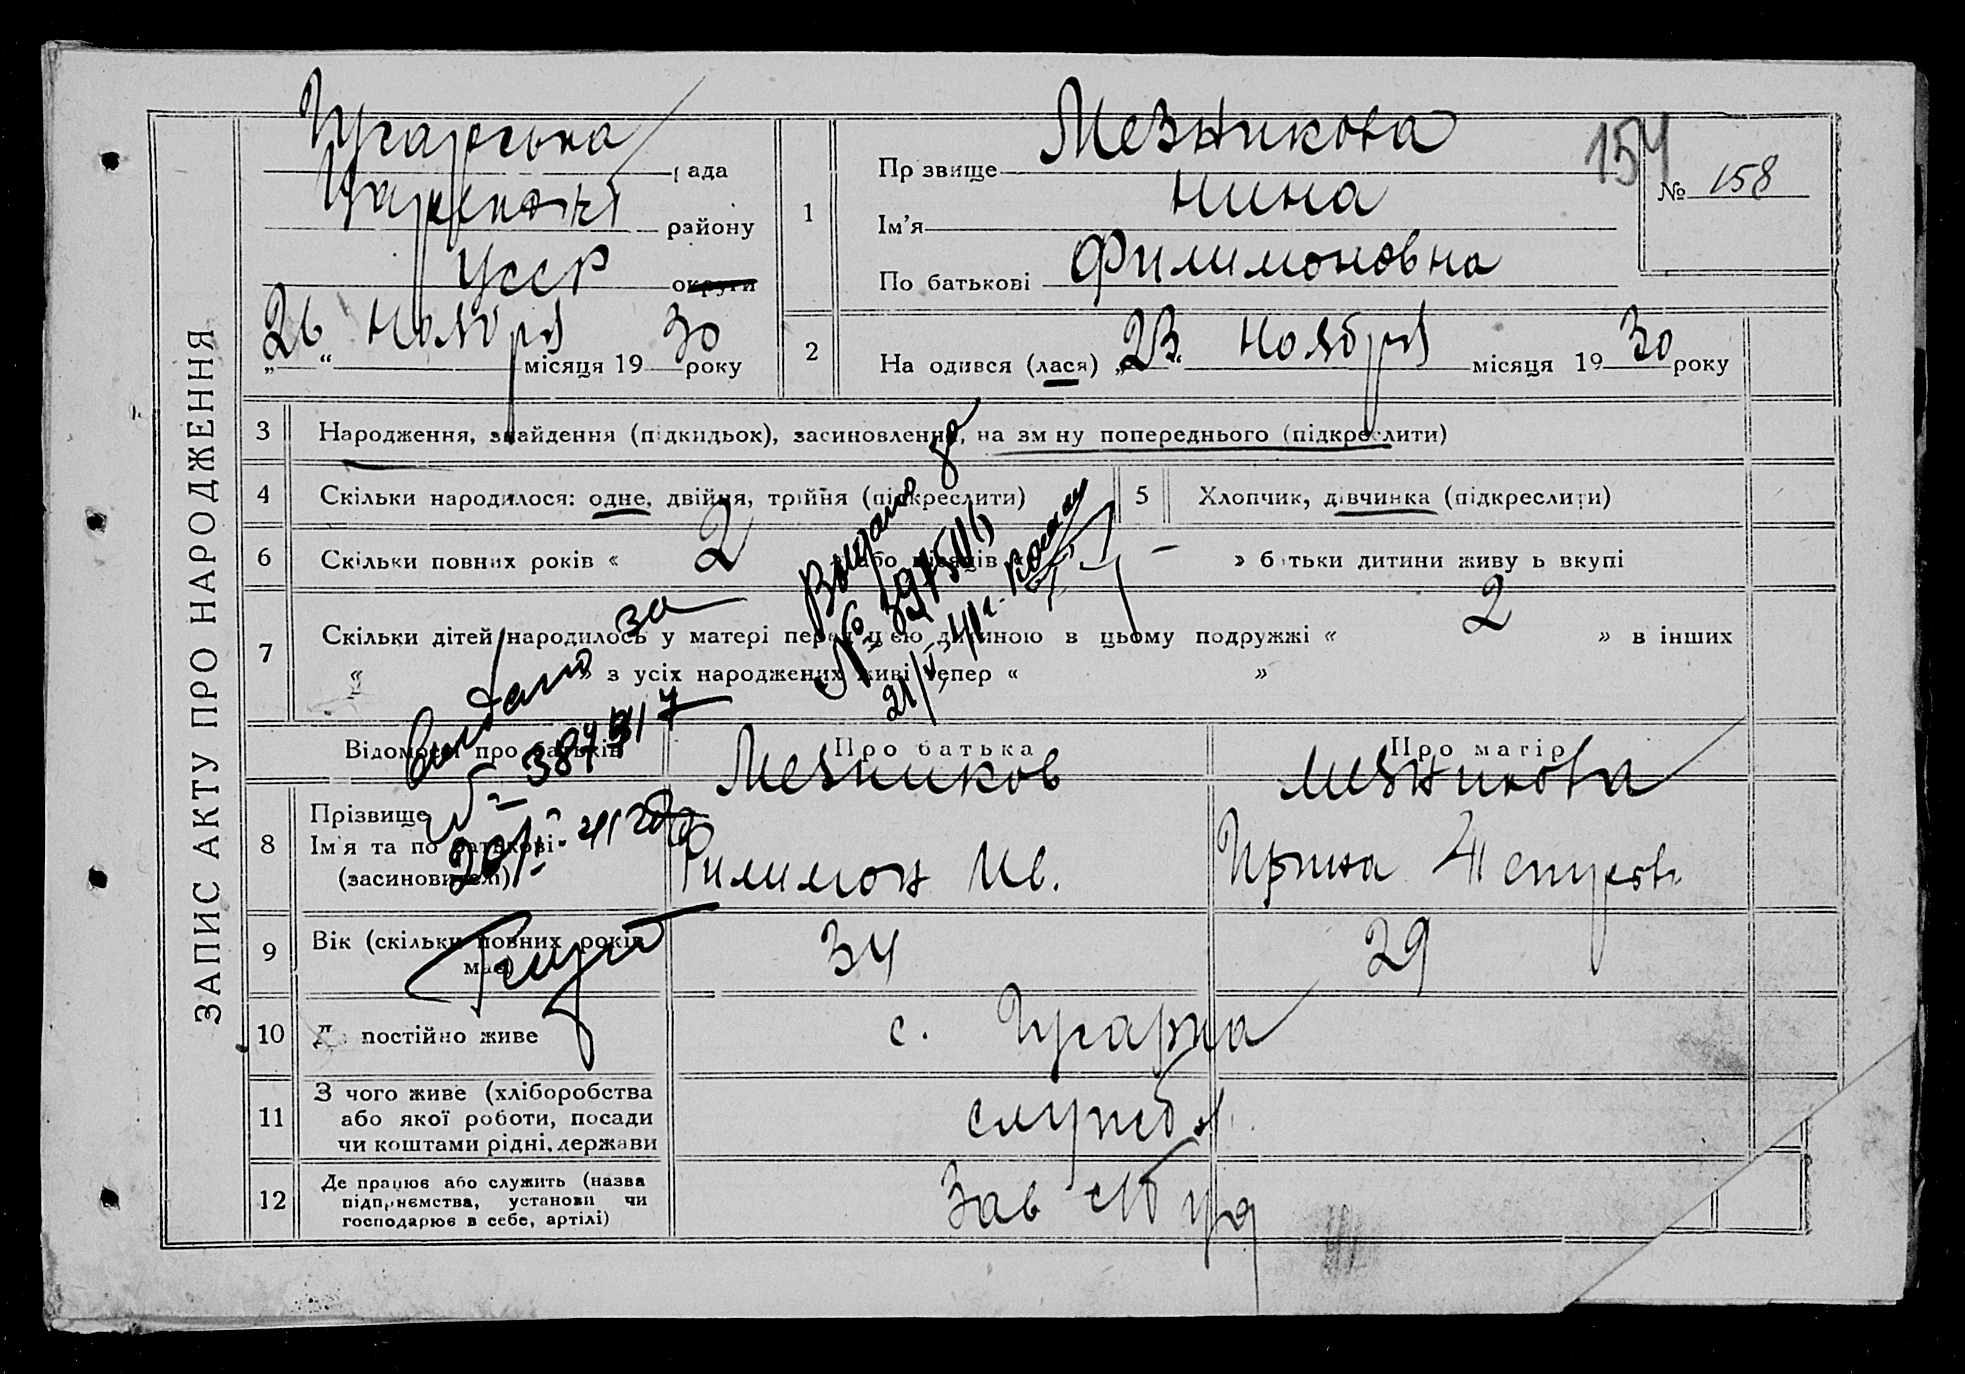 ЗАПИС АКТУ ПРО НАРОДЖЕННЯ
рада
району
УССР округи
26 Ноября місяця 19 30 року
154
№ 158
1 Прзвище Мезникова
Ім'я Нина
По батькові Филимоновна
2 Народився (лася) „23“ Ноября місяця 19 30 року
3 Народження, знайдення (підкидьок), засиновлення, на зміну попереднього (підкреслити)
4 Скільки народилося: одне, двійня, трійня (підкреслити)
5 Хлопчик, дівчинка (підкреслити)
6 Скільки повних років « 2 або місяців — » батьки дитини живуть вкупі
7 Скільки дітей народилось у матері перед цією дитиною в цьому подружжі « 2 » в інших
« » з усіх народжених живі тепер « »
Видано за
Видано за
21/
Відомості про батьків
Про батька
Про матір
8 Прізвище
Ім'я та по батькові
(засиновителі)
Мезников
Филимон Ив.
Мезникова
Ирина
9 Вік (скільки повних років має)
34
29
10 Де постійно живе
с.
11 З чого живе (хліборобства
або якої роботи, посади
чи коштами рідні, держави
служб.
12 Де працює або служить (назва
підприємства, установи чи
господарює в себе, артілі)
Зав